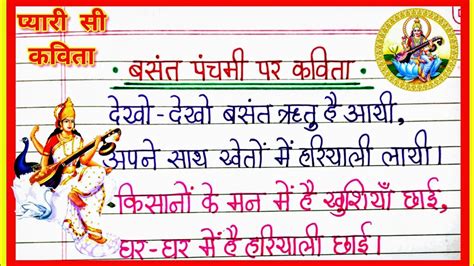 प्यारी सी
कविता
• बसंत पंचमी पर कविता •
देखो-देखो बसंत ऋतु है आयी,
अपने साथ खेतों में हरियाली लायी।
किसानों के मन में है खुशियाँ छाई,
घर-घर में है हरियाली छाई।